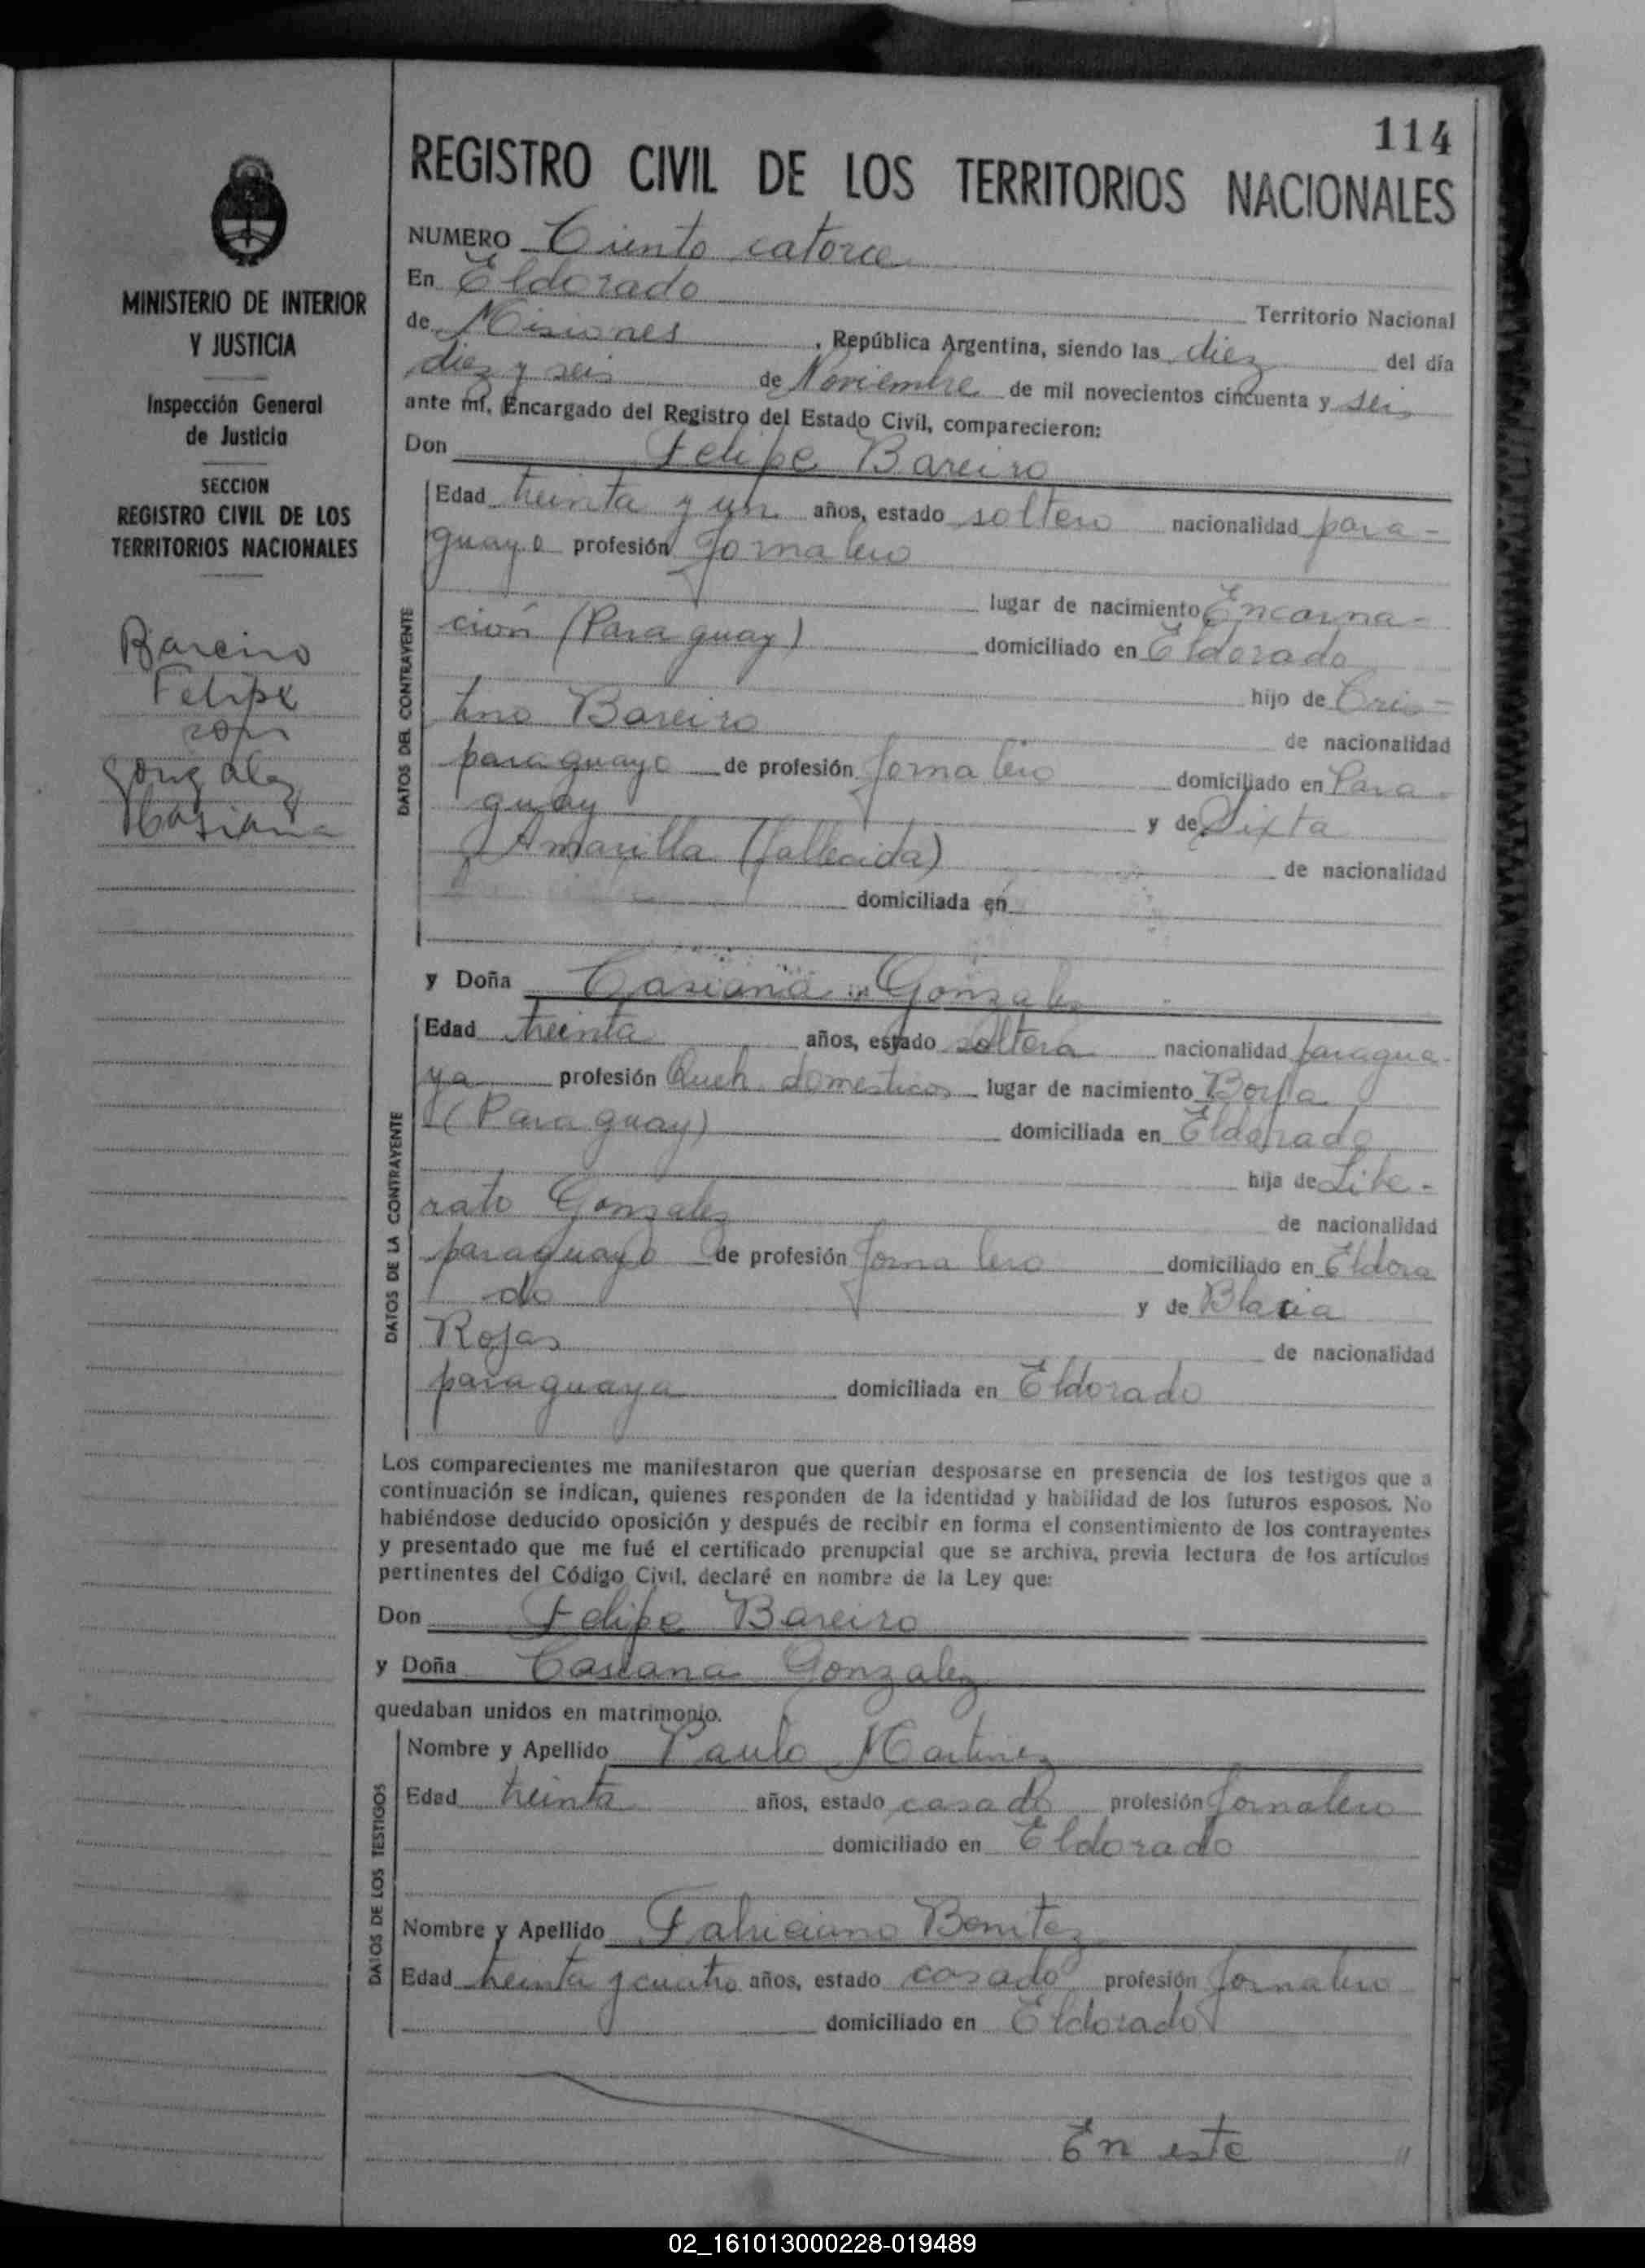 114
REGISTRO CIVIL DE LOS TERRITORIOS NACIONALES
MINISTERIO DE INTERIOR
Y JUSTICIA
Inspección General
de Justicia
SECCION
REGISTRO CIVIL DE LOS
TERRITORIOS NACIONALES
Bareiro
Felipe
con
Gonzalez
Casiana
NUMERO Ciento catorce
En Eldorado Territorio Nacional
de Misiones, República Argentina, siendo las diez del día
diez y seis de Noviembre de mil novecientos cincuenta y seis
ante mí, Encargado del Registro del Estado Civil, comparecieron:
Don Felipe Bareiro
DATOS DEL CONTRAYENTE
Edad treinta y un años, estado soltero nacionalidad para-
guayo profesión Jornalero
lugar de nacimiento Encarna-
ción (Paraguay) domiciliado en Eldorado
hijo de Cris-
tino Bareiro de nacionalidad
paraguayo de profesión Jornalero domiciliado en Para-
guay y de Sixta
Amarilla (fallecida) de nacionalidad
domiciliada en
y Doña Casiana Gonzalez
DATOS DE LA CONTRAYENTE
Edad treinta años, estado soltera nacionalidad paragua-
ya profesión Queh. domesticos lugar de nacimiento
(Paraguay) domiciliada en Eldorado
hija de Libe-
rato Gonzalez de nacionalidad
paraguayo de profesión Jornalero domiciliado en Eldora
do y de
Rojas de nacionalidad
paraguaya domiciliada en Eldorado
Los comparecientes me manifestaron que querían desposarse en presencia de los testigos que a
continuación se indican, quienes responden de la identidad y habilidad de los futuros esposos. No
habiéndose deducido oposición y después de recibir en forma el consentimiento de los contrayentes
y presentado que me fué el certificado prenupcial que se archiva, previa lectura de los artículos
pertinentes del Código Civil, declaré en nombre de la Ley que:
Don Felipe Bareiro
y Doña Casiana Gonzalez
quedaban unidos en matrimonio.
DATOS DE LOS TESTIGOS
Nombre y Apellido Paulo Martinez
Edad treinta años, estado casado profesión Jornalero
domiciliado en Eldorado
Nombre y Apellido Fabriciano Benitez
Edad treinta y cuatro años, estado casado profesión Jornalero
domiciliado en Eldorado
En este "
02_161013000228-019489